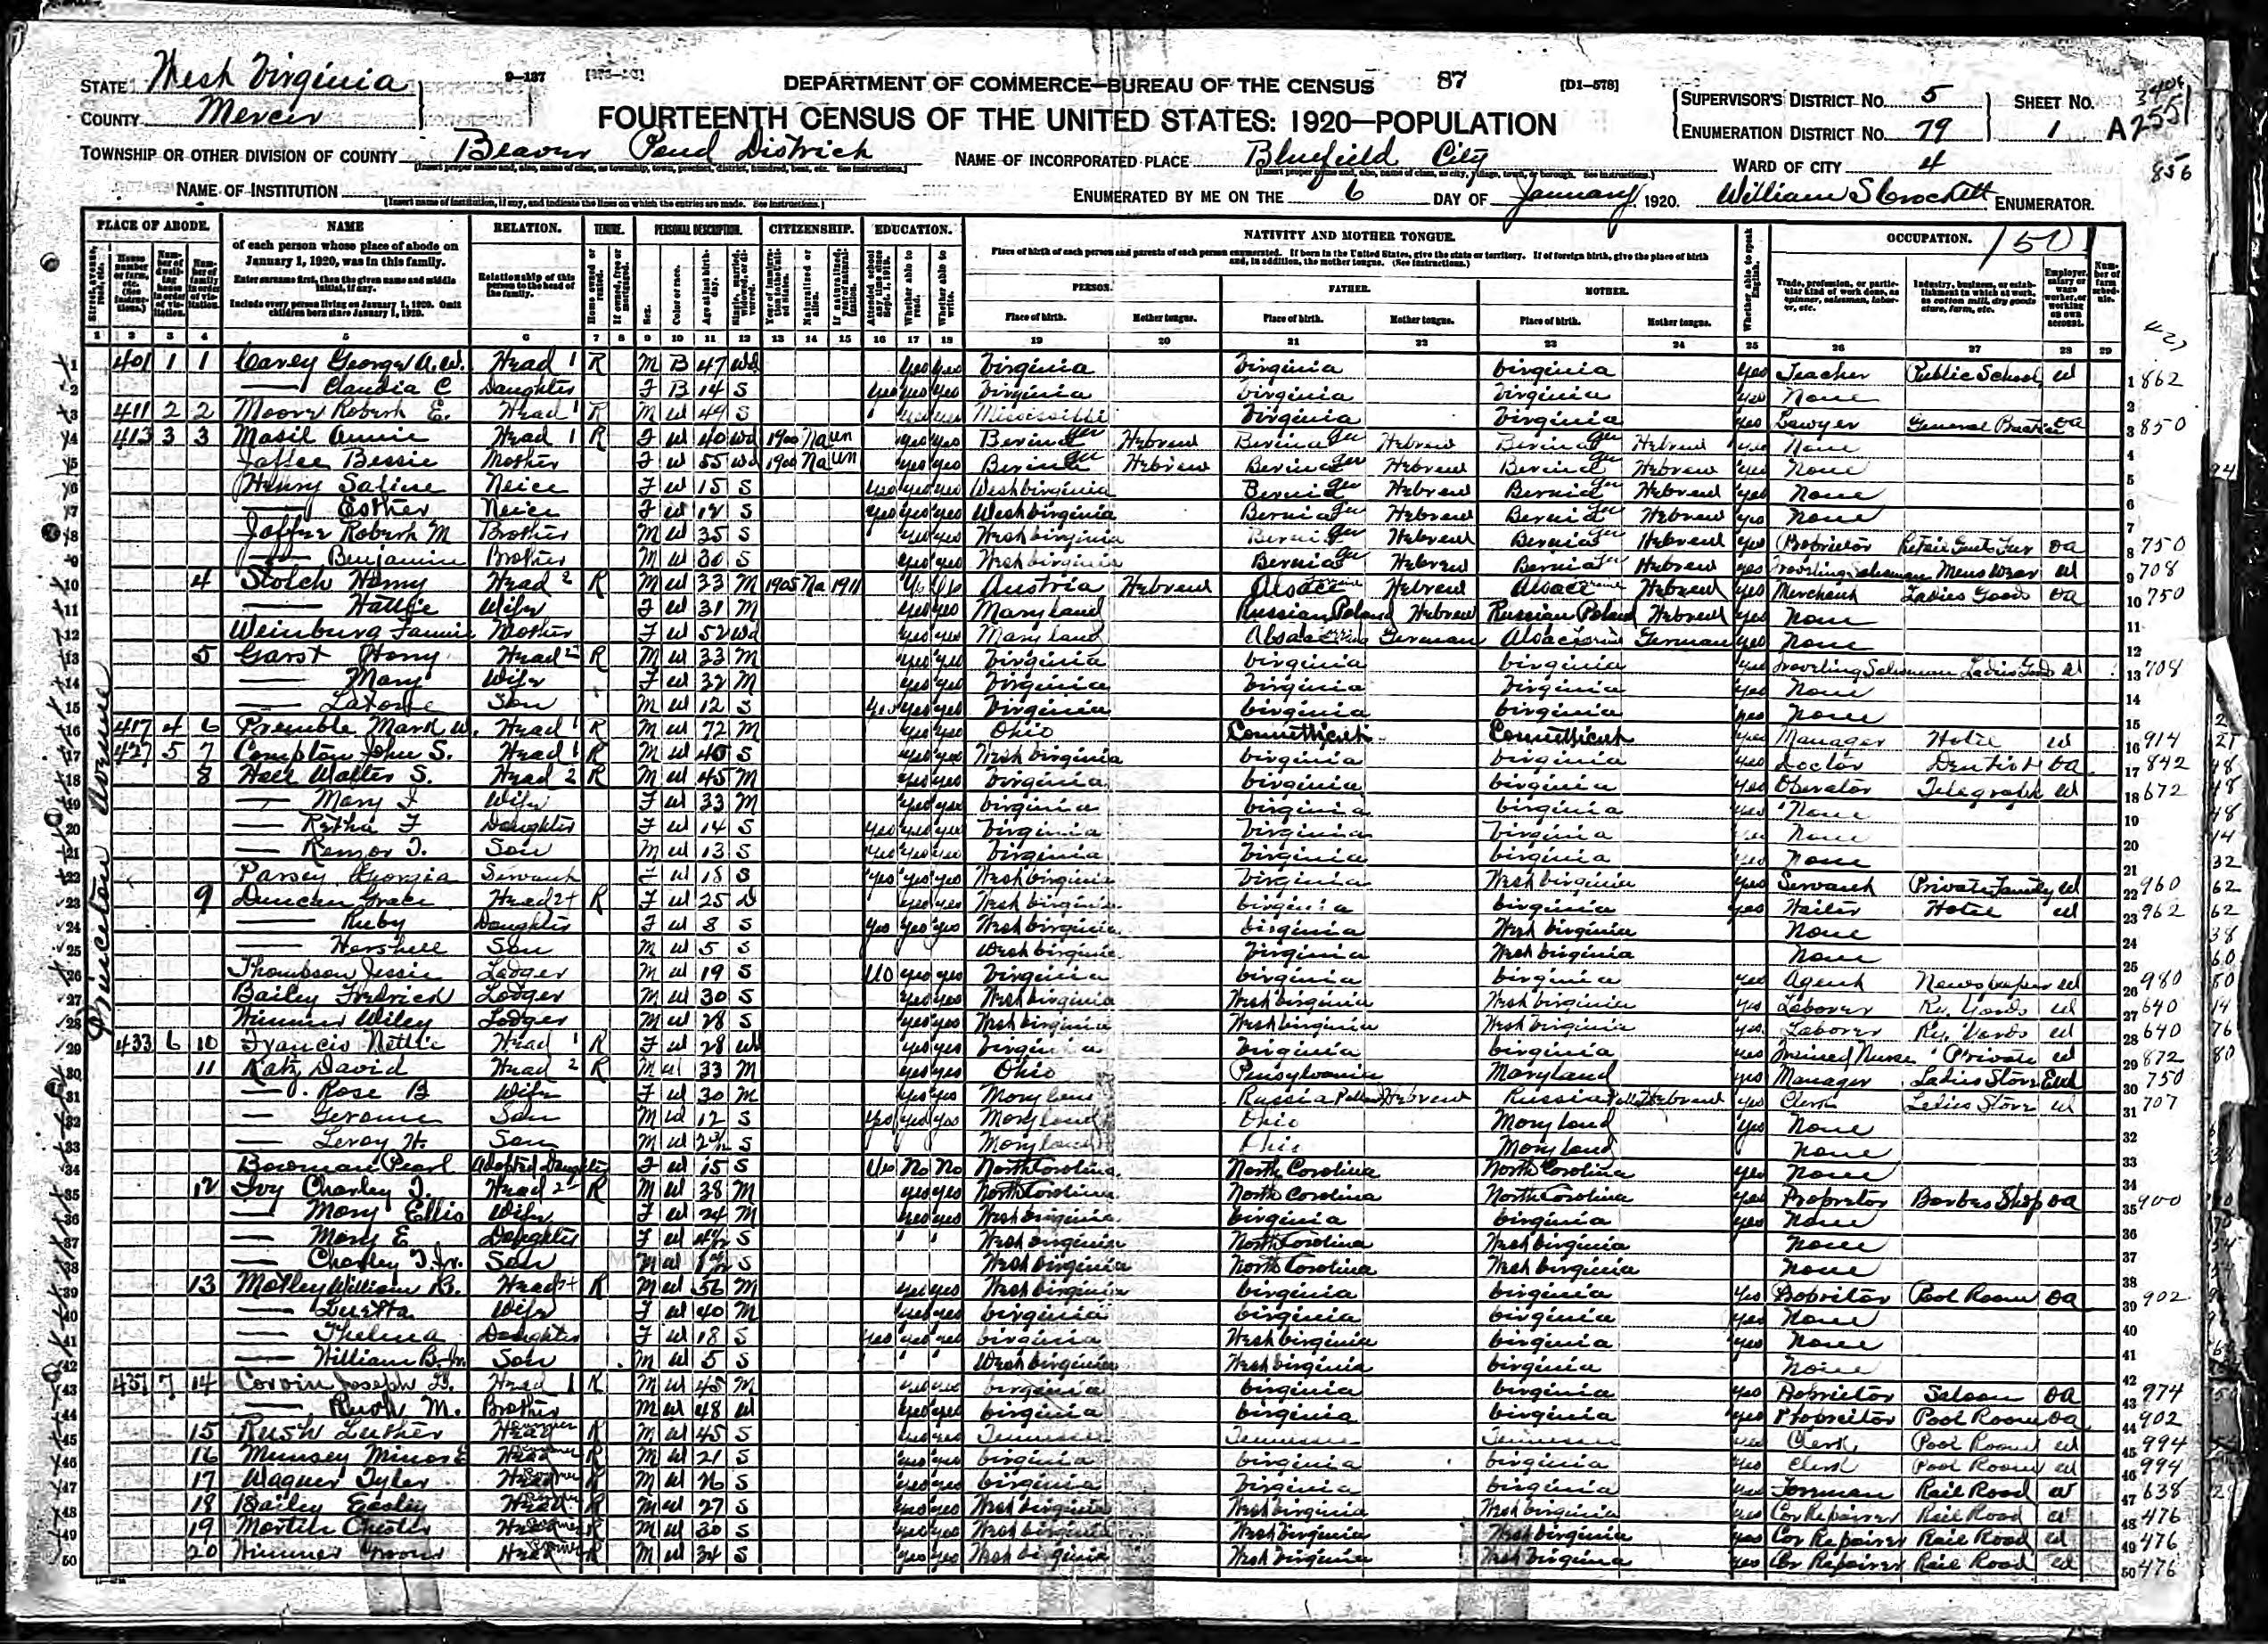 STATE West Virginia
COUNTY Mercer
9-137
DEPARTMENT OF COMMERCE—BUREAU OF THE CENSUS 87 [D1-578]
FOURTEENTH CENSUS OF THE UNITED STATES: 1920—POPULATION
SUPERVISOR'S DISTRICT NO. 5 SHEET NO.
ENUMERATION DISTRICT NO. 79 1 A
TOWNSHIP OR OTHER DIVISION OF COUNTY Beaver Pond District NAME OF INCORPORATED PLACE Bluefield City WARD OF CITY 4
856
NAME OF INSTITUTION ENUMERATED BY ME ON THE 6 DAY OF January, 1920. William S Crockett ENUMERATOR.
PLACE OF ABODE. NAME RELATION. TENURE. PERSONAL DESCRIPTION. CITIZENSHIP. EDUCATION. NATIVITY AND MOTHER TONGUE. OCCUPATION. 150
of each person whose place of abode on January 1, 1920, was in this family.
Enter surname first, then the given name and middle initial, if any.
Include every person living on January 1, 1920. Omit children born since January 1, 1920.
Relationship of this person to the head of the family.
Place of birth of each person and parents of each person enumerated. If born in the United States, give the state or territory. If of foreign birth, give the place of birth and, in addition, the mother tongue. (See instructions.)
PERSON. FATHER. MOTHER.
Place of birth. Mother tongue. Place of birth. Mother tongue. Place of birth. Mother tongue.
1 2 3 4 5 6 7 8 9 10 11 12 13 14 15 16 17 18 19 20 21 22 23 24 25 26 27 28 29
Princeton Avenue
1 401 1 1 Carey George A.W. Head 1 R M B 47 Wd yes yes Virginia Virginia Virginia yes Teacher Public School W 862
2 Claudia C Daughter F B 14 S yes yes yes Virginia Virginia Virginia yes None
3 411 2 2 Moore Robert E. Head 1 R M W 49 S yes yes Mississippi Virginia Virginia yes Lawyer General Practice OA 850
4 413 3 3 Masil Annie Head 1 R F W 40 Wd 1900 Na un yes yes Ger Hebrew Ger Hebrew Ger Hebrew yes None
5 Jaffee Bessie Mother F W 55 Wd 1900 Na un yes yes Ger Hebrew Ger Hebrew Ger Hebrew yes None
6 Henry Saline Neice F W 15 S yes yes yes West Virginia Ger Hebrew Ger Hebrew yes None
7 Esther Neice F W 12 S yes yes yes West Virginia Ger Hebrew Ger Hebrew yes None
8 Jaffee Robert M Brother M W 35 S yes yes West Virginia Ger Hebrew Ger Hebrew yes Proprietor OA 750
9 Benjamin Brother M W 30 S yes yes West Virginia Ger Hebrew Ger Hebrew yes Traveling Salesman Mens Wear W 708
10 4 Stolch Henry Head 2 R M W 33 M 1905 Na 1911 yes yes Austria Hebrew Alsace Hebrew Alsace Hebrew yes Merchant Ladies Goods OA 750
11 Hattie Wife F W 31 M yes yes Maryland Russian Poland Hebrew Russian Poland Hebrew yes None
12 Weinburg Fannie Mother F W 52 Wd yes yes Maryland German German yes None
13 5 Garst Hary Head 2 R M W 33 M yes yes Virginia Virginia Virginia yes Traveling Salesman Ladies Goods W 708
14 Mary Wife F W 32 M yes yes Virginia Virginia Virginia yes None
15 Son M W 12 S yes yes yes Virginia Virginia Virginia yes None
16 417 4 6 Mark W. Head 1 R M W 72 M yes yes Ohio Connetticut Connetticut yes Manager Hotel W 914
17 427 5 7 Compton John S. Head 1 R M W 40 S yes yes West Virginia Virginia Virginia yes Doctor Dentist OA 842
18 8 Walter S. Head 2 R M W 45 M yes yes Virginia Virginia Virginia yes Operator Telegraph W 672
19 Mary F Wife F W 33 M yes yes Virginia Virginia Virginia yes None
20 Retha F Daughter F W 14 S yes yes yes Virginia Virginia Virginia yes None
21 Son M W 13 S yes yes yes Virginia Virginia Virginia yes None
22 Parsey Georgia Servant F W 18 S yes yes yes West Virginia Virginia West Virginia yes Servant Private Family W 960
23 9 Duncan Grace Head 2+ R F W 25 D yes yes West Virginia Virginia Virginia yes Waiter Hotel W 962
24 Ruby Daughter F W 8 S yes yes yes West Virginia Virginia West Virginia None
25 Hershell Son M W 5 S West Virginia Virginia West Virginia None
26 Thompson Jessie Lodger M W 19 S No yes yes Virginia Virginia Virginia yes Agent Newspaper W 980
27 Bailey Fredrick Lodger M W 30 S yes yes West Virginia West Virginia West Virginia yes Laborer Ry. Yards W 640
28 Wimmer Wiley Lodger M W 28 S yes yes West Virginia West Virginia West Virginia yes Laborer Ry. Yards W 640
29 433 6 10 Francis Nettie Head 1 R F W 28 Wd yes yes Virginia Virginia Virginia yes Trained Nurse Private W 872
30 11 Katz David Head 2 R M W 33 M yes yes Ohio Pensylvania Maryland yes Manager Ladies Store Em 750
31 Rose B Wife F W 30 M yes yes Maryland Russia Hebrew Russia Hebrew yes Clerk Ladies Store W 707
32 Gerome Son M W 12 S yes yes yes Maryland Ohio Maryland yes None
33 Leroy H. Son M W S Maryland Ohio Maryland None
34 Bowman Pearl Adopted Daughter F W 15 S No No North Carolina North Carolina North Carolina yes None
35 12 Ivy Charley T. Head 2 R M W 38 M yes yes North Carolina North Carolina North Carolina yes Proprietor Barber Shop OA 900
36 Mary Ellis Wife F W 24 M yes yes West Virginia Virginia Virginia yes None
37 Mary E Daughter F W S West Virginia North Carolina West Virginia None
38 Charley T. Jr. Son M W S West Virginia North Carolina West Virginia None
39 13 Motley William B. Head 2+ R M W 56 M yes yes West Virginia Virginia Virginia yes Proprietor Pool Room OA 902
40 Luetta Wife F W 40 M yes yes Virginia Virginia Virginia yes None
41 Thelma Daughter F W 18 S yes yes yes Virginia West Virginia Virginia yes None
42 William B. Jr. Son M W 5 S West Virginia West Virginia Virginia None
43 451 7 14 Corvin Joseph Head 1 R M W 45 M yes yes Virginia Virginia Virginia yes Proprietor Saloon OA 974
44 M. Brother M W 48 yes yes Virginia Virginia Virginia yes Proprietor Pool Room OA 902
45 15 Rush Luther Head R M W 45 S yes yes Tennessee Tennessee Tennessee yes Clerk Pool Room W 994
46 16 Munsey Minor E Head R M W 21 S yes yes Virginia Virginia Virginia yes Clerk Pool Room W 994
47 17 Wagner Tyler Head R M W 26 S yes yes Virginia Virginia Virginia yes Forman Rail Road W 638
48 18 Bailey Easley Head R M W 27 S yes yes West Virginia West Virginia West Virginia yes Car Repairer Rail Road W 476
49 19 Martin Chester Head R M W 30 S yes yes West Virginia West Virginia West Virginia yes Car Repairer Rail Road W 476
50 20 Wimmer Head R M W 34 S yes yes West Virginia West Virginia West Virginia yes Car Repairer Rail Road W 476